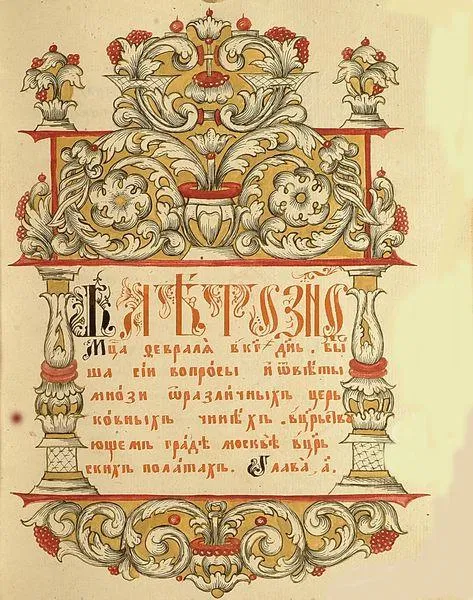 В лѣт ҂знѳ
Мца февралѧ вкг҃ дн҃ь . бы
ша сїи вопросы и ѿвѣты
мнѡзи ѡразличныхъ цер
ковныхъ чинѣхъ . вцр҃ьствꙋ
ющемъ градѣ москвѣ вцр҃ь
скихъ полатахъ . Глава , а҃ .